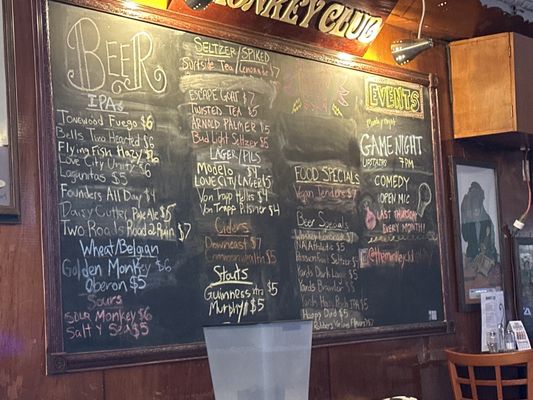 MONKEY CLUB
BEER
IPAs
Tonewood Fuego $6
Bells Two Hearted $6
Flying Fish Hazy $6
Love City Unity $6
Lagunitas $5
Founders All Day $4
Daisy Cutter Pale Ale $5
Two Roads Road 2 Ruin $7
Wheat/Belgian
Golden Monkey $6
Oberon $5
Sours
Sour Monkey $6
Salty $5
SELTZER/SPIKED
Surfside Tea/Lemonade $7
ESCAPE GOAT $7
TWISTED TEA $5
ARNOLD PALMER $5
Bud Light Seltzer $5
LAGER/PILS
Modelo $4
LOVE CITY LAGER $5
Von Trapp Pils $4
Von Trapp Pilsner $4
Ciders
Downeast $7
Commonwealth $5
Stouts
Guinness $5
Murphy's $5
FOOD SPECIALS
Vegan Tenders
Beer Specials
EVENTS
GAME NIGHT
UPSTAIRS 7PM
COMEDY
OPEN MIC
LAST THURSDAY
EVERY MONTH!